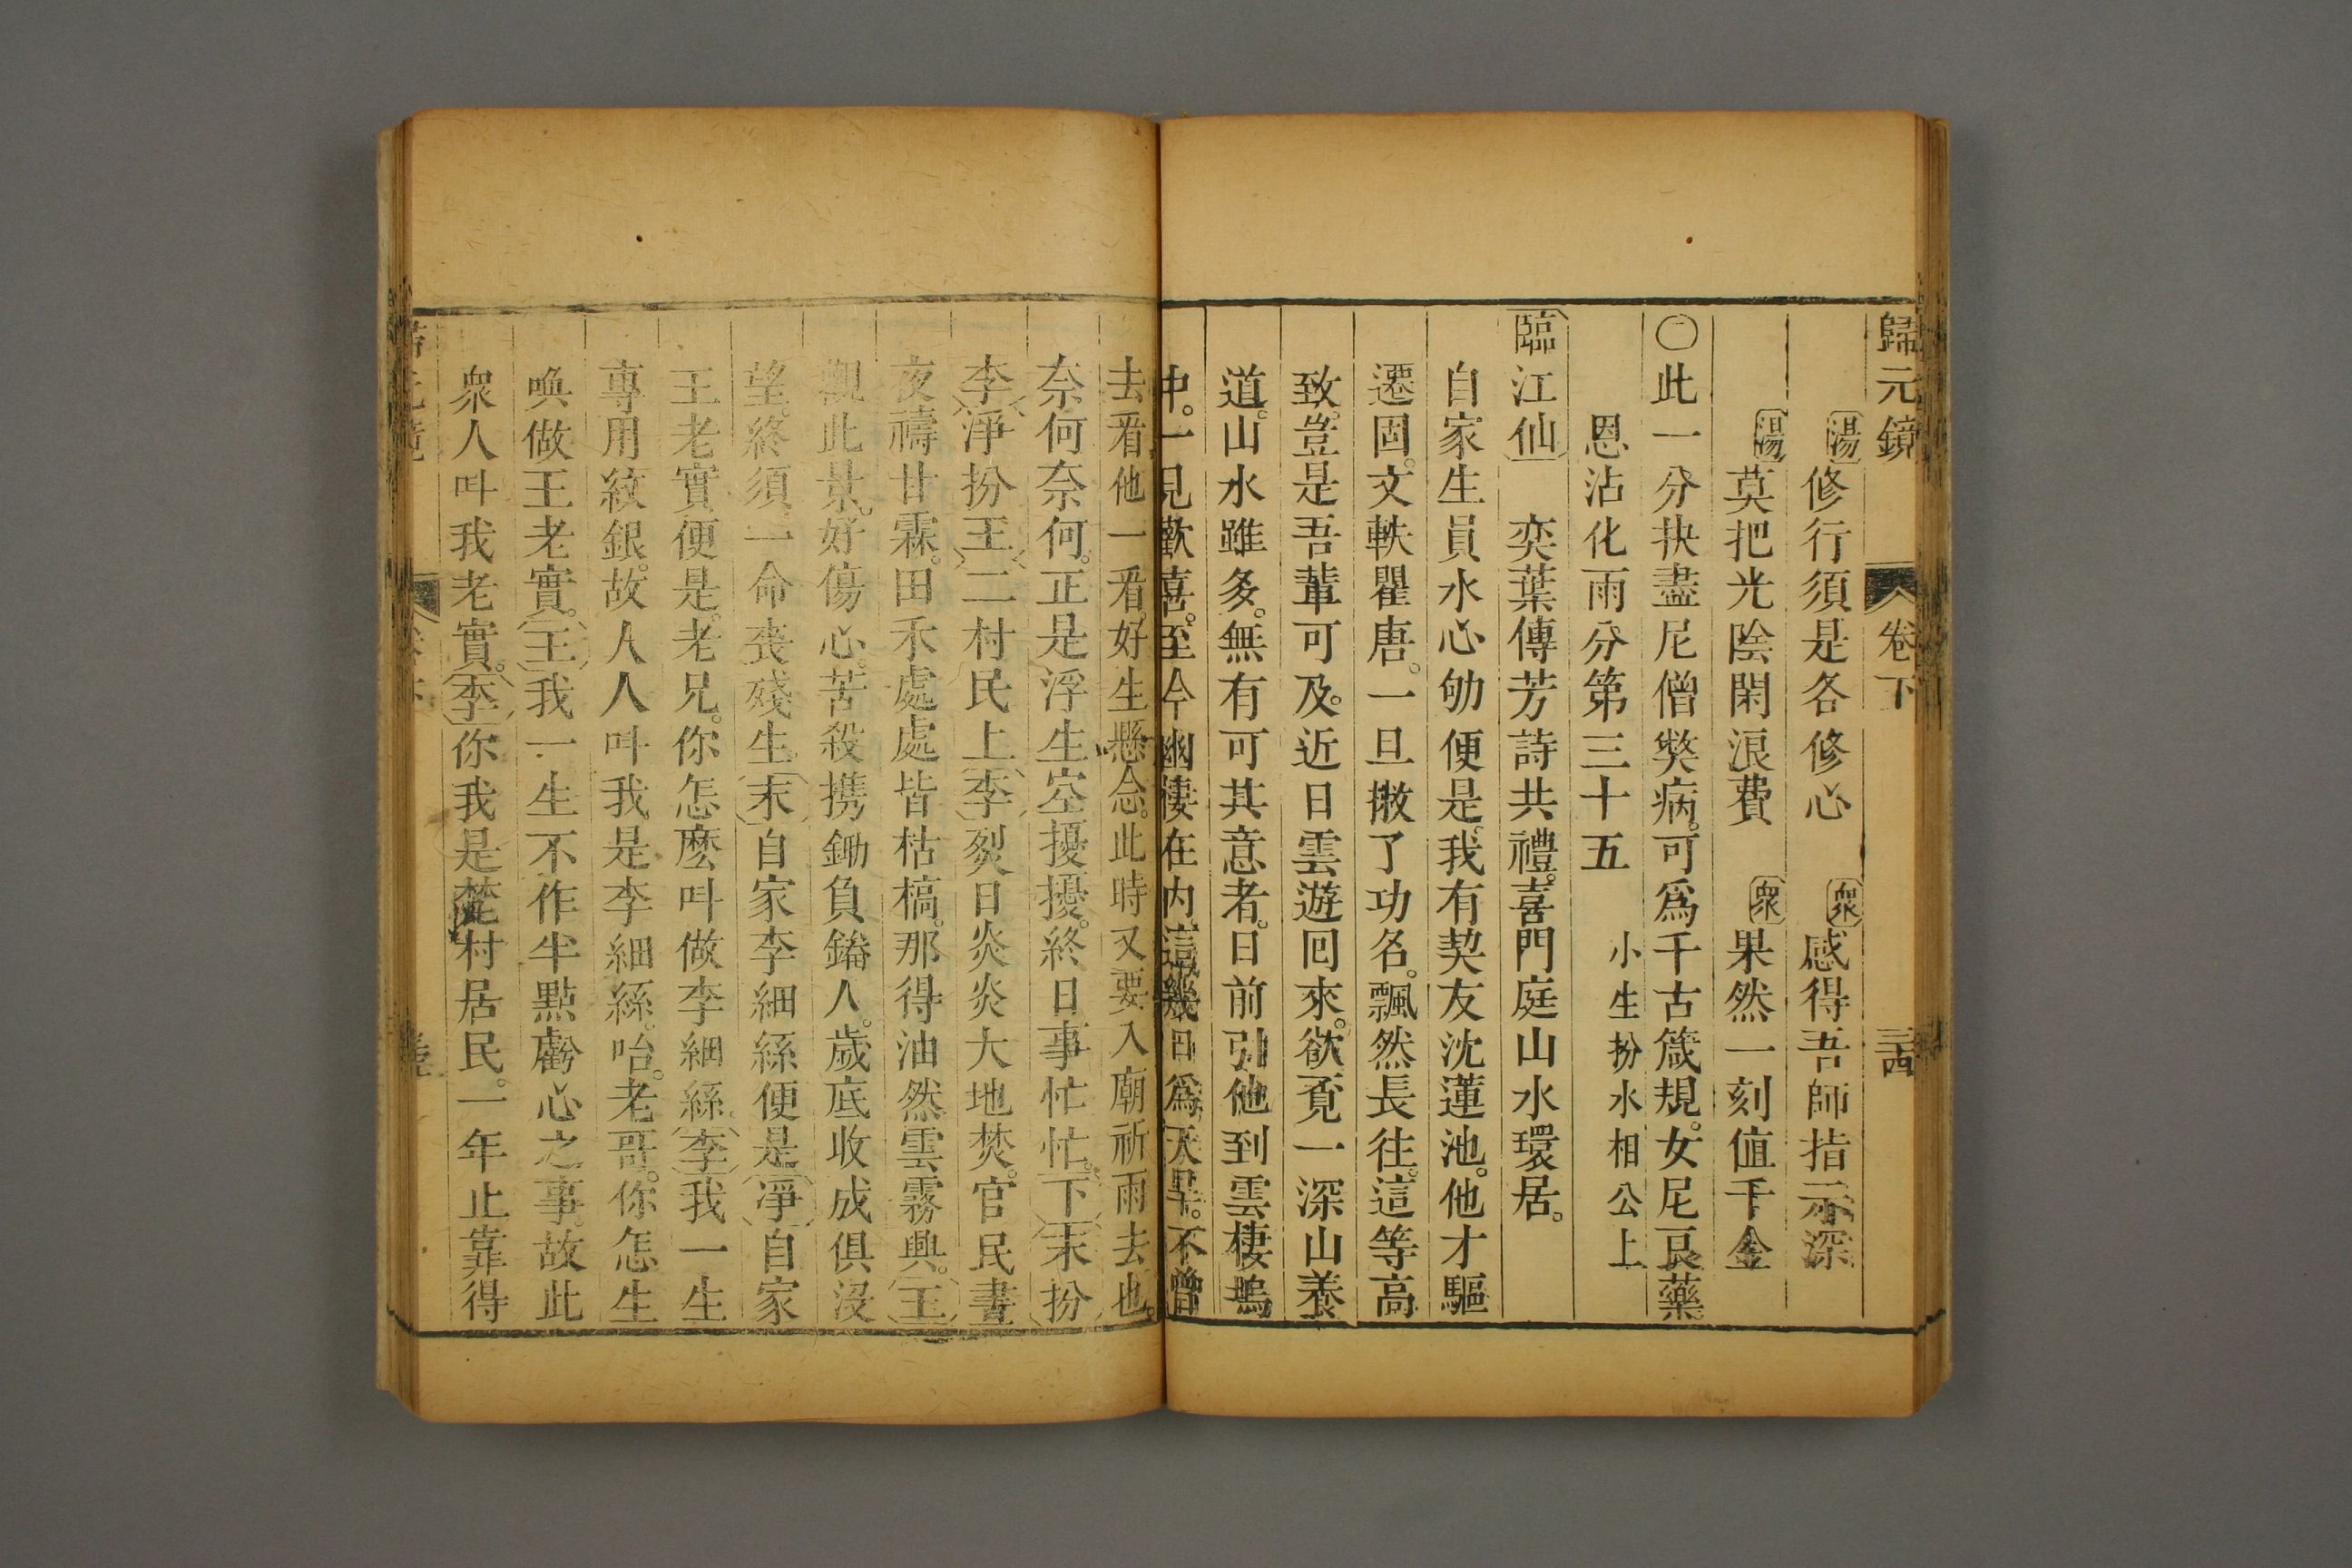 歸元鏡 卷下 三四
湯修行須是各修心 衆感得吾師指示深
湯莫把光陰閑浪費 衆果然一刻值千金
〇此一分抉盡尼僧獘病。可爲千古箴規。女尼良藥。
恩沾化雨分第三十五 小生扮水相公上
臨江仙 奕葉傳芳詩共禮。喜門庭山水環居。
自家生員水心劬便是。我有契友沈蓮池。他才驅
遷固。文軼瞿唐。一旦撇了功名。飄然長往。這等高
致。豈是吾輩可及。近日雲遊回來。欲覔一深山養
道。山水雖多。無有可其意者。日前引他到雲棲塢
中。一見歡喜。至今幽棲在內。這幾日爲天旱。不曾
去看他一看。好生懸念。此時又要入廟祈雨去也。
奈何奈何。正是浮生空擾擾。終日事忙忙。下末扮
李淨扮王二村民上李烈日炎炎大地焚。官民晝
夜禱甘霖。田禾處處皆枯槁。那得油然雲霧興。王
觀此景。好傷心。苦殺携鋤負鎰人。歲底收成俱沒
望。終須一命喪殘生末自家李細絲便是淨自家
王老實便是。老兄。你怎麽叫做李細絲李我一生
專用紋銀。故人人叫我是李細絲。咍。老哥。你怎生
喚做王老實。王我一生不作半點虧心之事。故此
衆人叫我老實。李你我是村居民。一年止靠得